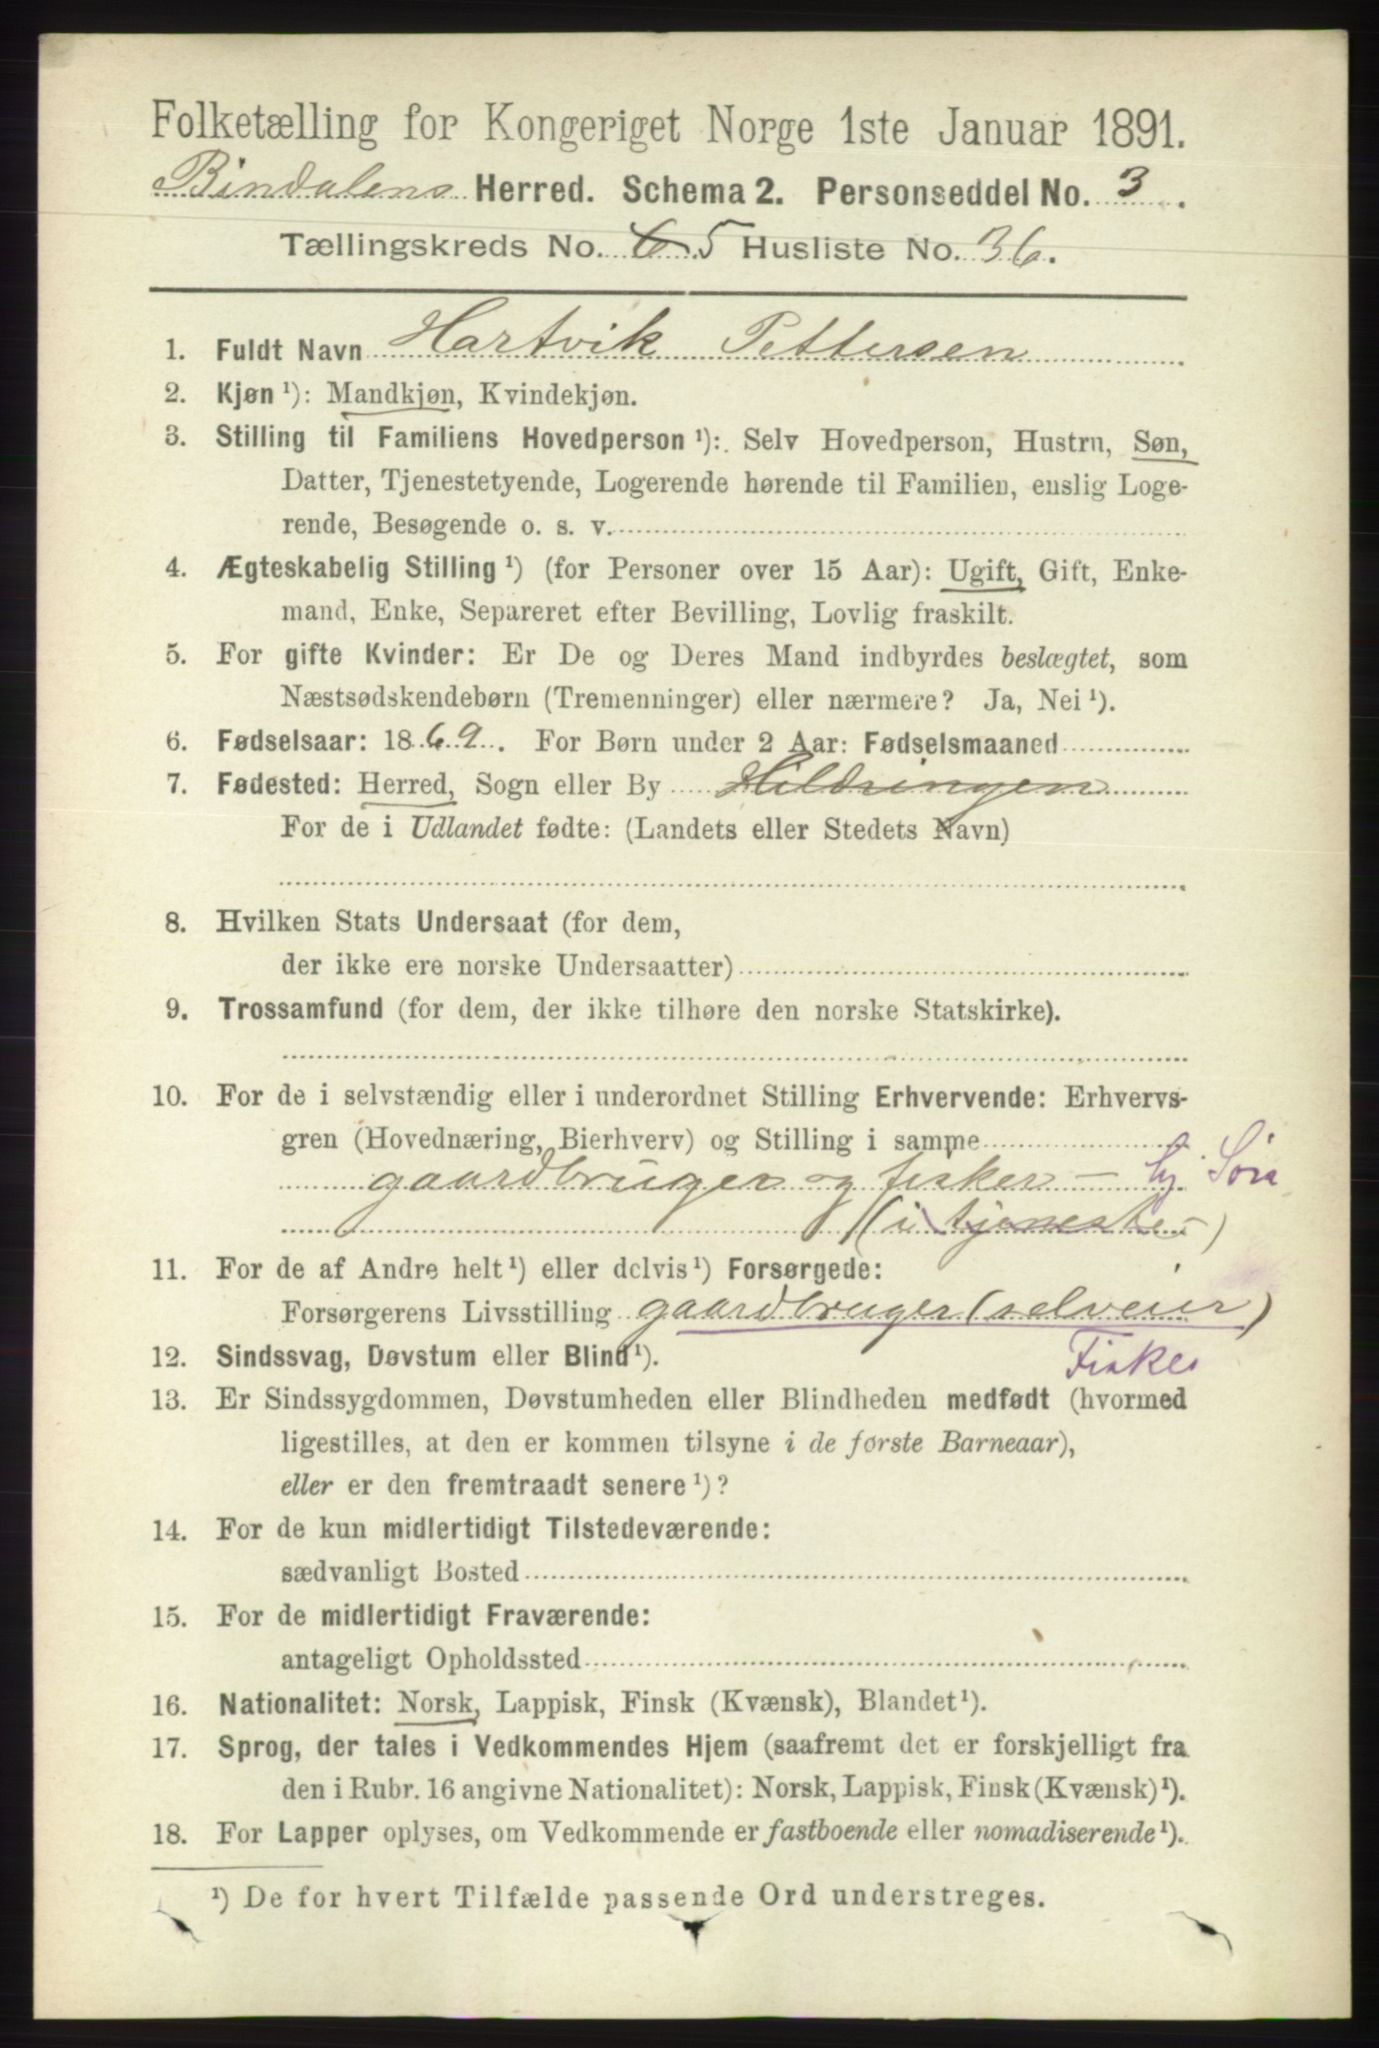 Folketælling for Kongeriget Norge 1ste Januar 1891.
Bindalens Herred. Schema 2. Personseddel No. 3.
Tællingskreds No. 6 5 Husliste No. 36.
1. Fuldt Navn Hartvik Pettersen
2. Kjøn ¹): Mandkjøn, Kvindekjøn.
3. Stilling til Familiens Hovedperson ¹): Selv Hovedperson, Hustru, Søn,
Datter, Tjenestetyende, Logerende hørende til Familien, enslig Loge-
rende, Besøgende o. s. v.
4. Ægteskabelig Stilling ¹) (for Personer over 15 Aar): Ugift, Gift, Enke-
mand, Enke, Separeret efter Bevilling, Lovlig fraskilt.
5. For gifte Kvinder: Er De og Deres Mand indbyrdes beslægtet, som
Næstsødskendebørn (Tremenninger) eller nærmere? Ja, Nei ¹).
6. Fødselsaar: 1869. For Børn under 2 Aar: Fødselsmaaned
7. Fødested: Herred, Sogn eller By Hildringen
For de i Udlandet fødte: (Landets eller Stedets Navn)
8. Hvilken Stats Undersaat (for dem,
der ikke ere norske Undersaatter)
9. Trossamfund (for dem, der ikke tilhøre den norske Statskirke).
10. For de i selvstændig eller i underordnet Stilling Erhvervende: Erhvervs-
gren (Hovednæring, Bierhverv) og Stilling i samme
gaardbruger og fisker –
(i tjeneste –)
11. For de af Andre helt ¹) eller delvis ¹) Forsørgede:
Forsørgerens Livsstilling gaardbruger (selveier)
Fisker
12. Sindssvag, Døvstum eller Blind ¹).
13. Er Sindssygdommen, Døvstumheden eller Blindheden medfødt (hvormed
ligestilles, at den er kommen tilsyne i de første Barneaar),
eller er den fremtraadt senere ¹)?
14. For de kun midlertidigt Tilstedeværende:
sædvanligt Bosted
15. For de midlertidigt Fraværende:
antageligt Opholdssted
16. Nationalitet: Norsk, Lappisk, Finsk (Kvænsk), Blandet ¹).
17. Sprog, der tales i Vedkommendes Hjem (saafremt det er forskjelligt fra
den i Rubr. 16 angivne Nationalitet): Norsk, Lappisk, Finsk (Kvænsk) ¹).
18. For Lapper oplyses, om Vedkommende er fastboende eller nomadiserende ¹).
¹) De for hvert Tilfælde passende Ord understreges.